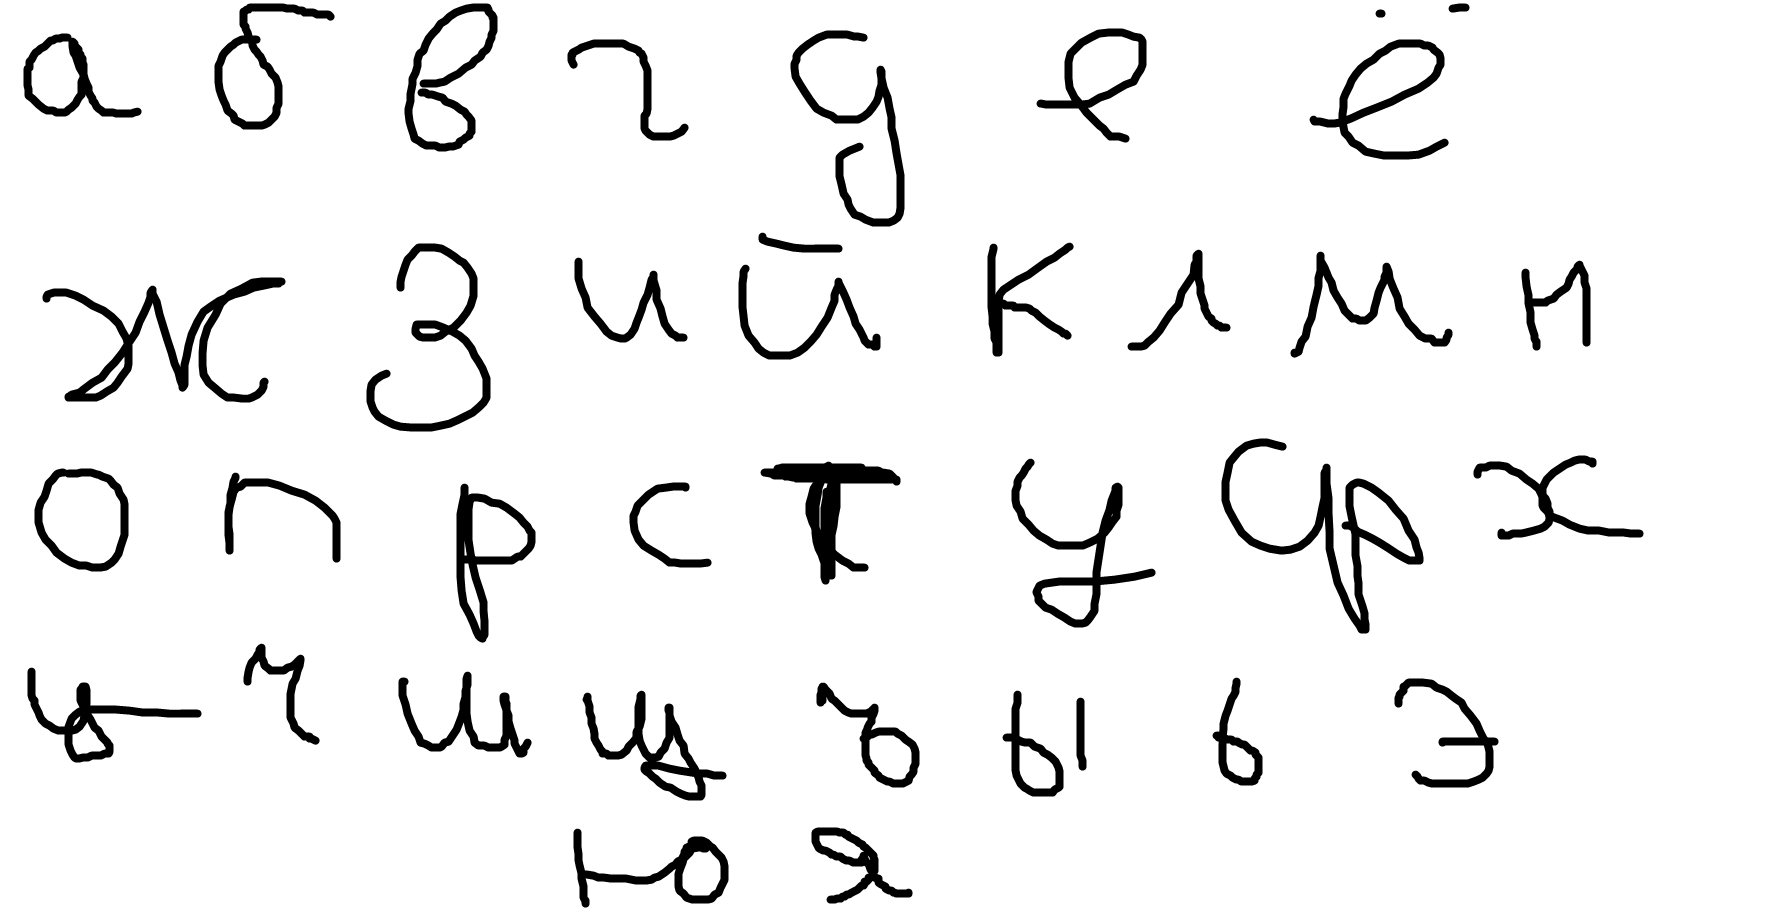 а б в г д е ё
ж з и й к л м н
о п р с т у ф х
ц ч ш щ ъ ы ь э
ю я